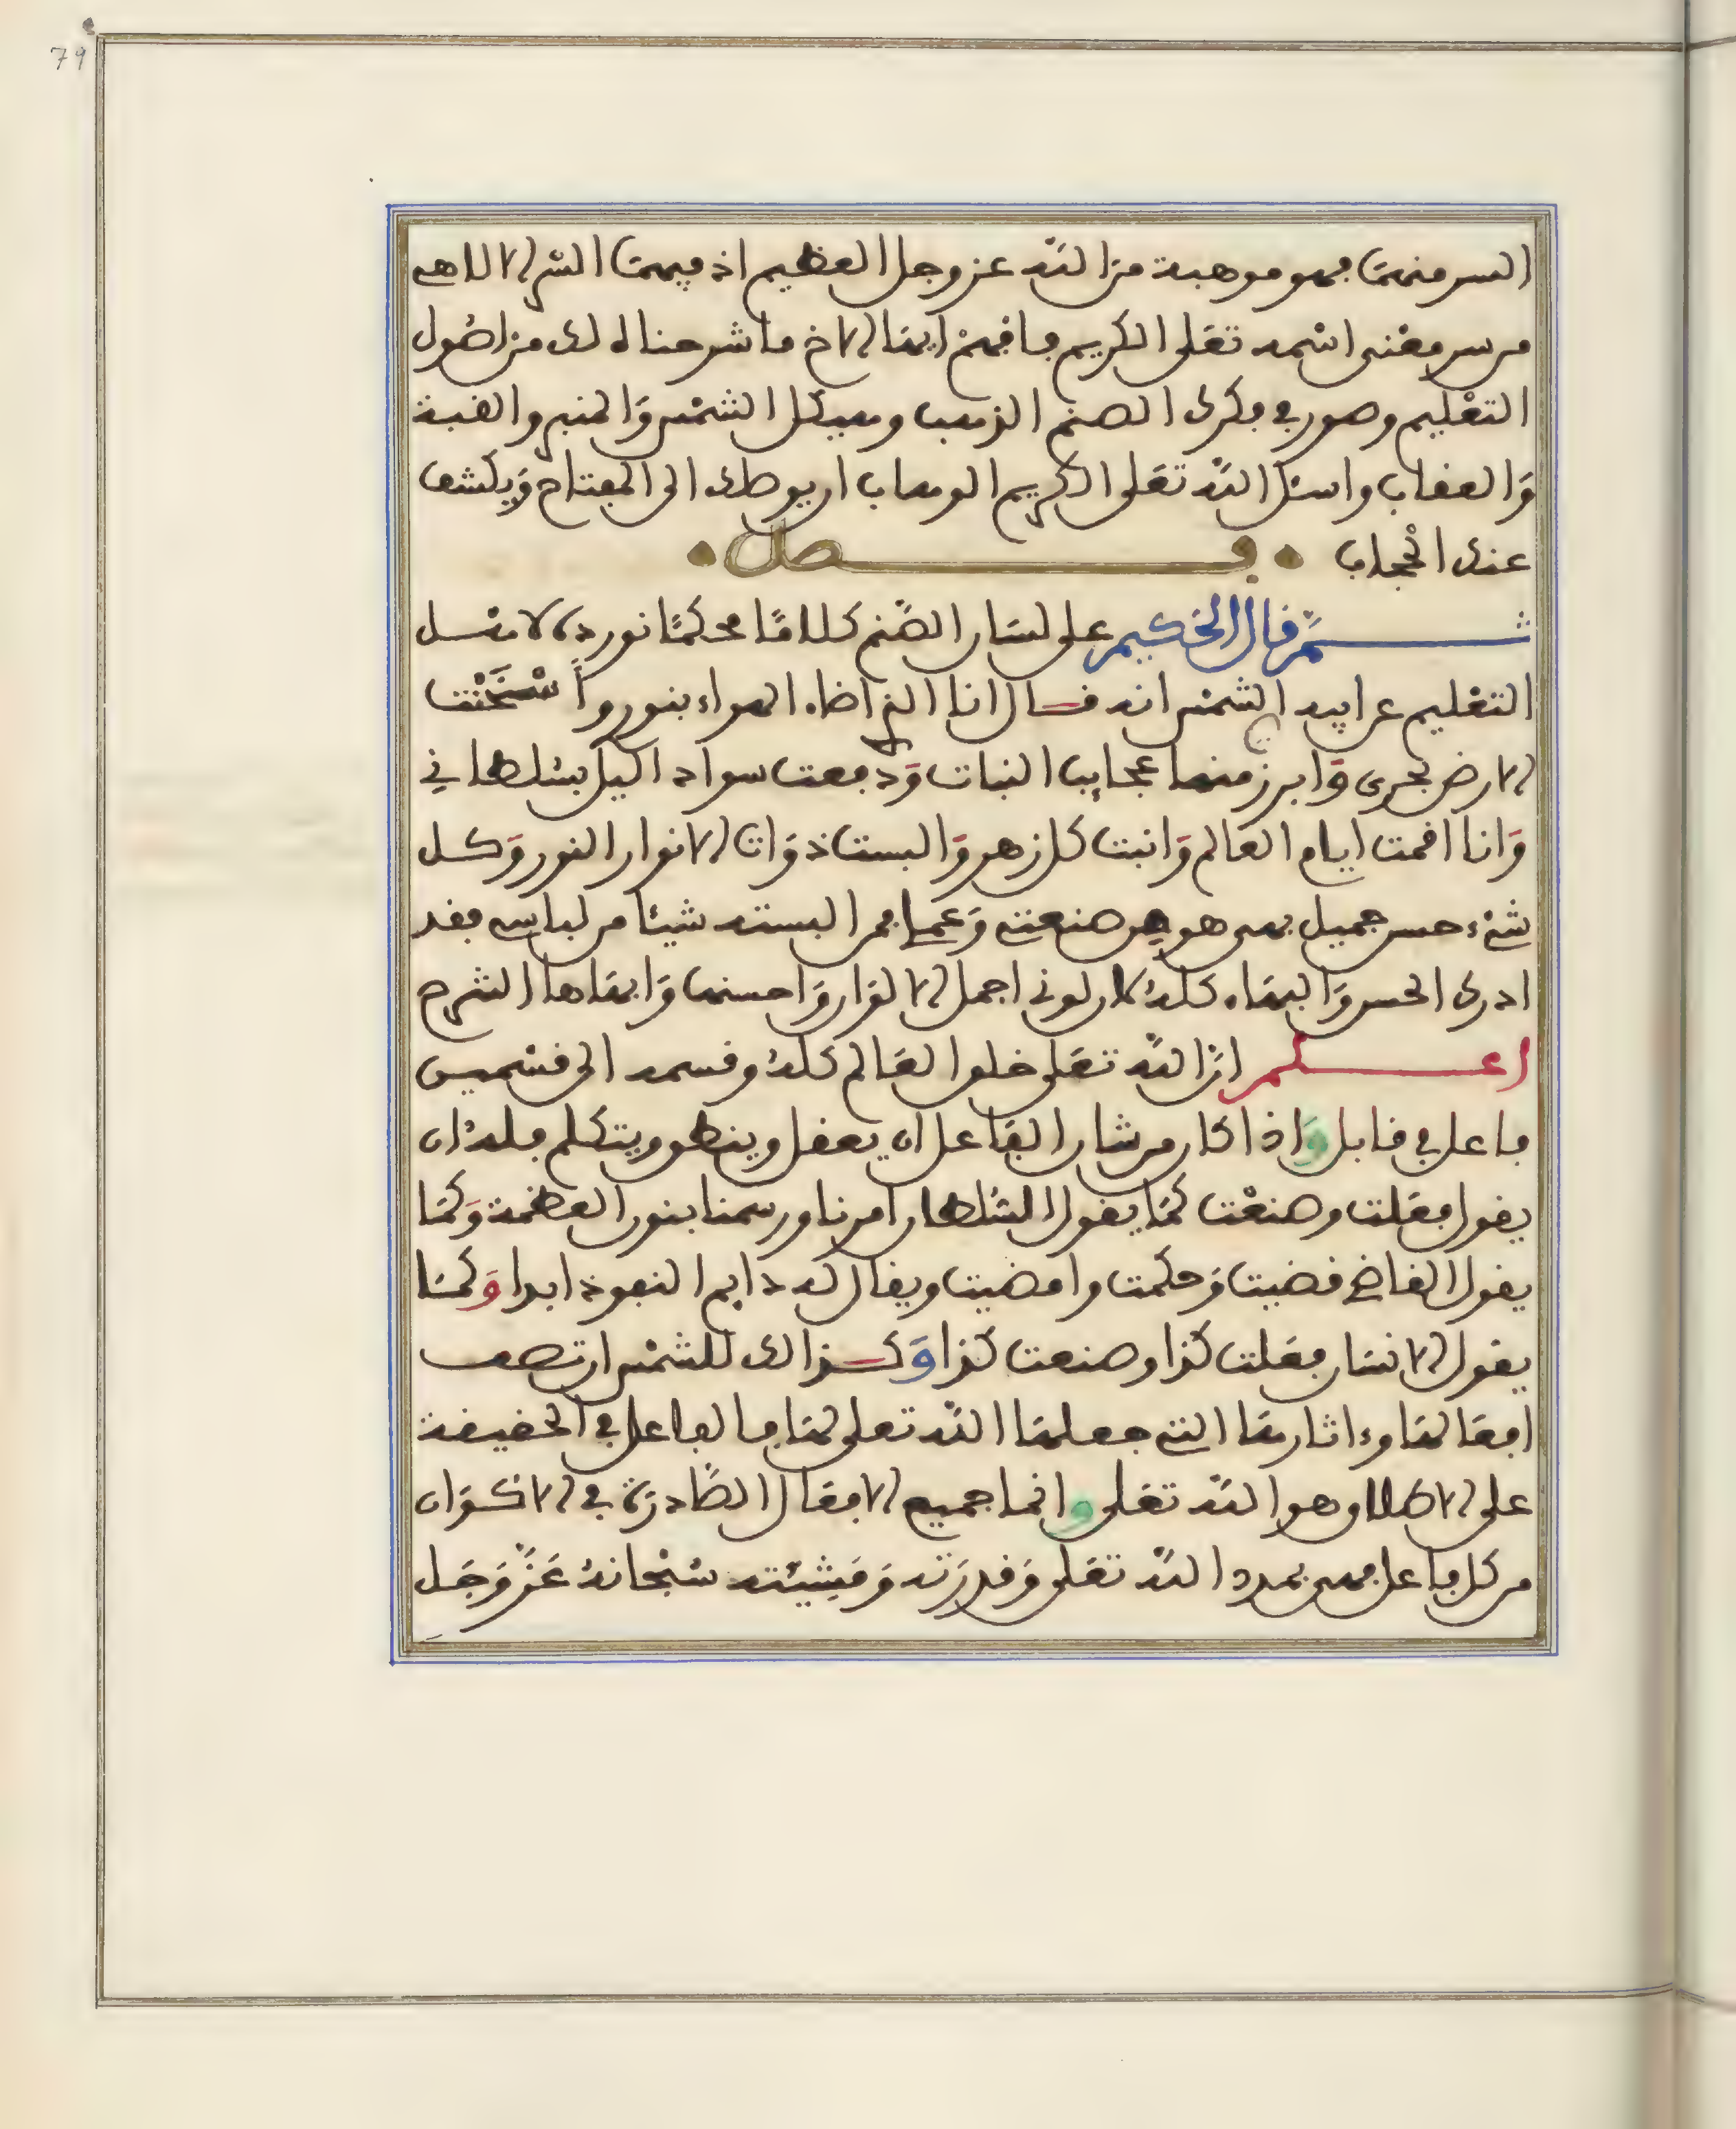 79
السر منها فهو موهبة من الله عز وجل العظيم اذ فيها السر الالاهي
من سر معنى اسمه تعلى الكريم فافهم ايها الاخ ما شرحناه لك من اصول
التعليم وصور في فكرك الصنم الذهب وهيكل الشمس والمنبر والقبة
والعقاب واسئل الله تعلى الكريم الوهاب ان يوصلك الى المفتاح ويكشف
عنك الحجاب • فصل •
ثم قال الحكيم على لسان الصنم كلاما محكما نورده لامثل
التعليم عن ابيه الشمس انه قال انا الذي اضاء الهواء بنوري واسخنت
الارض بحري وابرز منها عجايب النبات ودفعت سواد اليل بسلطاني
وانا اقمت ايام العالم وانبت كل زهر والبست ذوات الانوار النور وكل
شيء حسن جميل بهي هو من صنعتي وعملي فمن البسته شيئا من لباسي فقد
ادرك الحسن والبهاء كله لان لوني اجمل الالوان واحسنها وابهاها الشرح
اعلم ان الله تعلى خلق العالم كله وقسمه الى قسمين
فاعل في قابل واذا كان من شان الفاعل ان يعقل وينطق ويتكلم فله ان
يقول فعلت وصنعت كما يقول السلطان امرنا ورسمنا بنور العظمة وكما
يقول القاضي قضيت وحكمت وامضيت ويقال له دايم النفوذ ابدا وكما
يقول الانسان فعلت كذا وصنعت كذا وكذالك للشمس ان تصف
افعالها وءاثارها التي جعلها الله تعلى لها فالفاعل في الحقيقة
على الاطلاق هو الله تعلى وانما جميع الافعال الصادرة في الاكوان
من كل فاعل فهي بمدد الله تعلى وقدرته ومشيئته سبحانه عز وجل